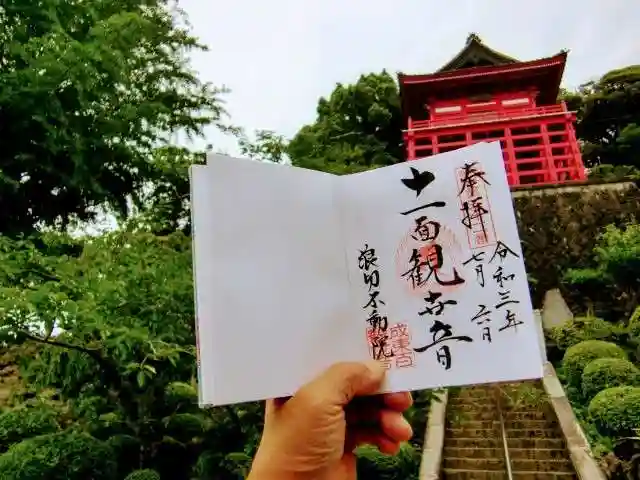 奉拝
令和三年
七月六日
十一面観世音
浪切不動院